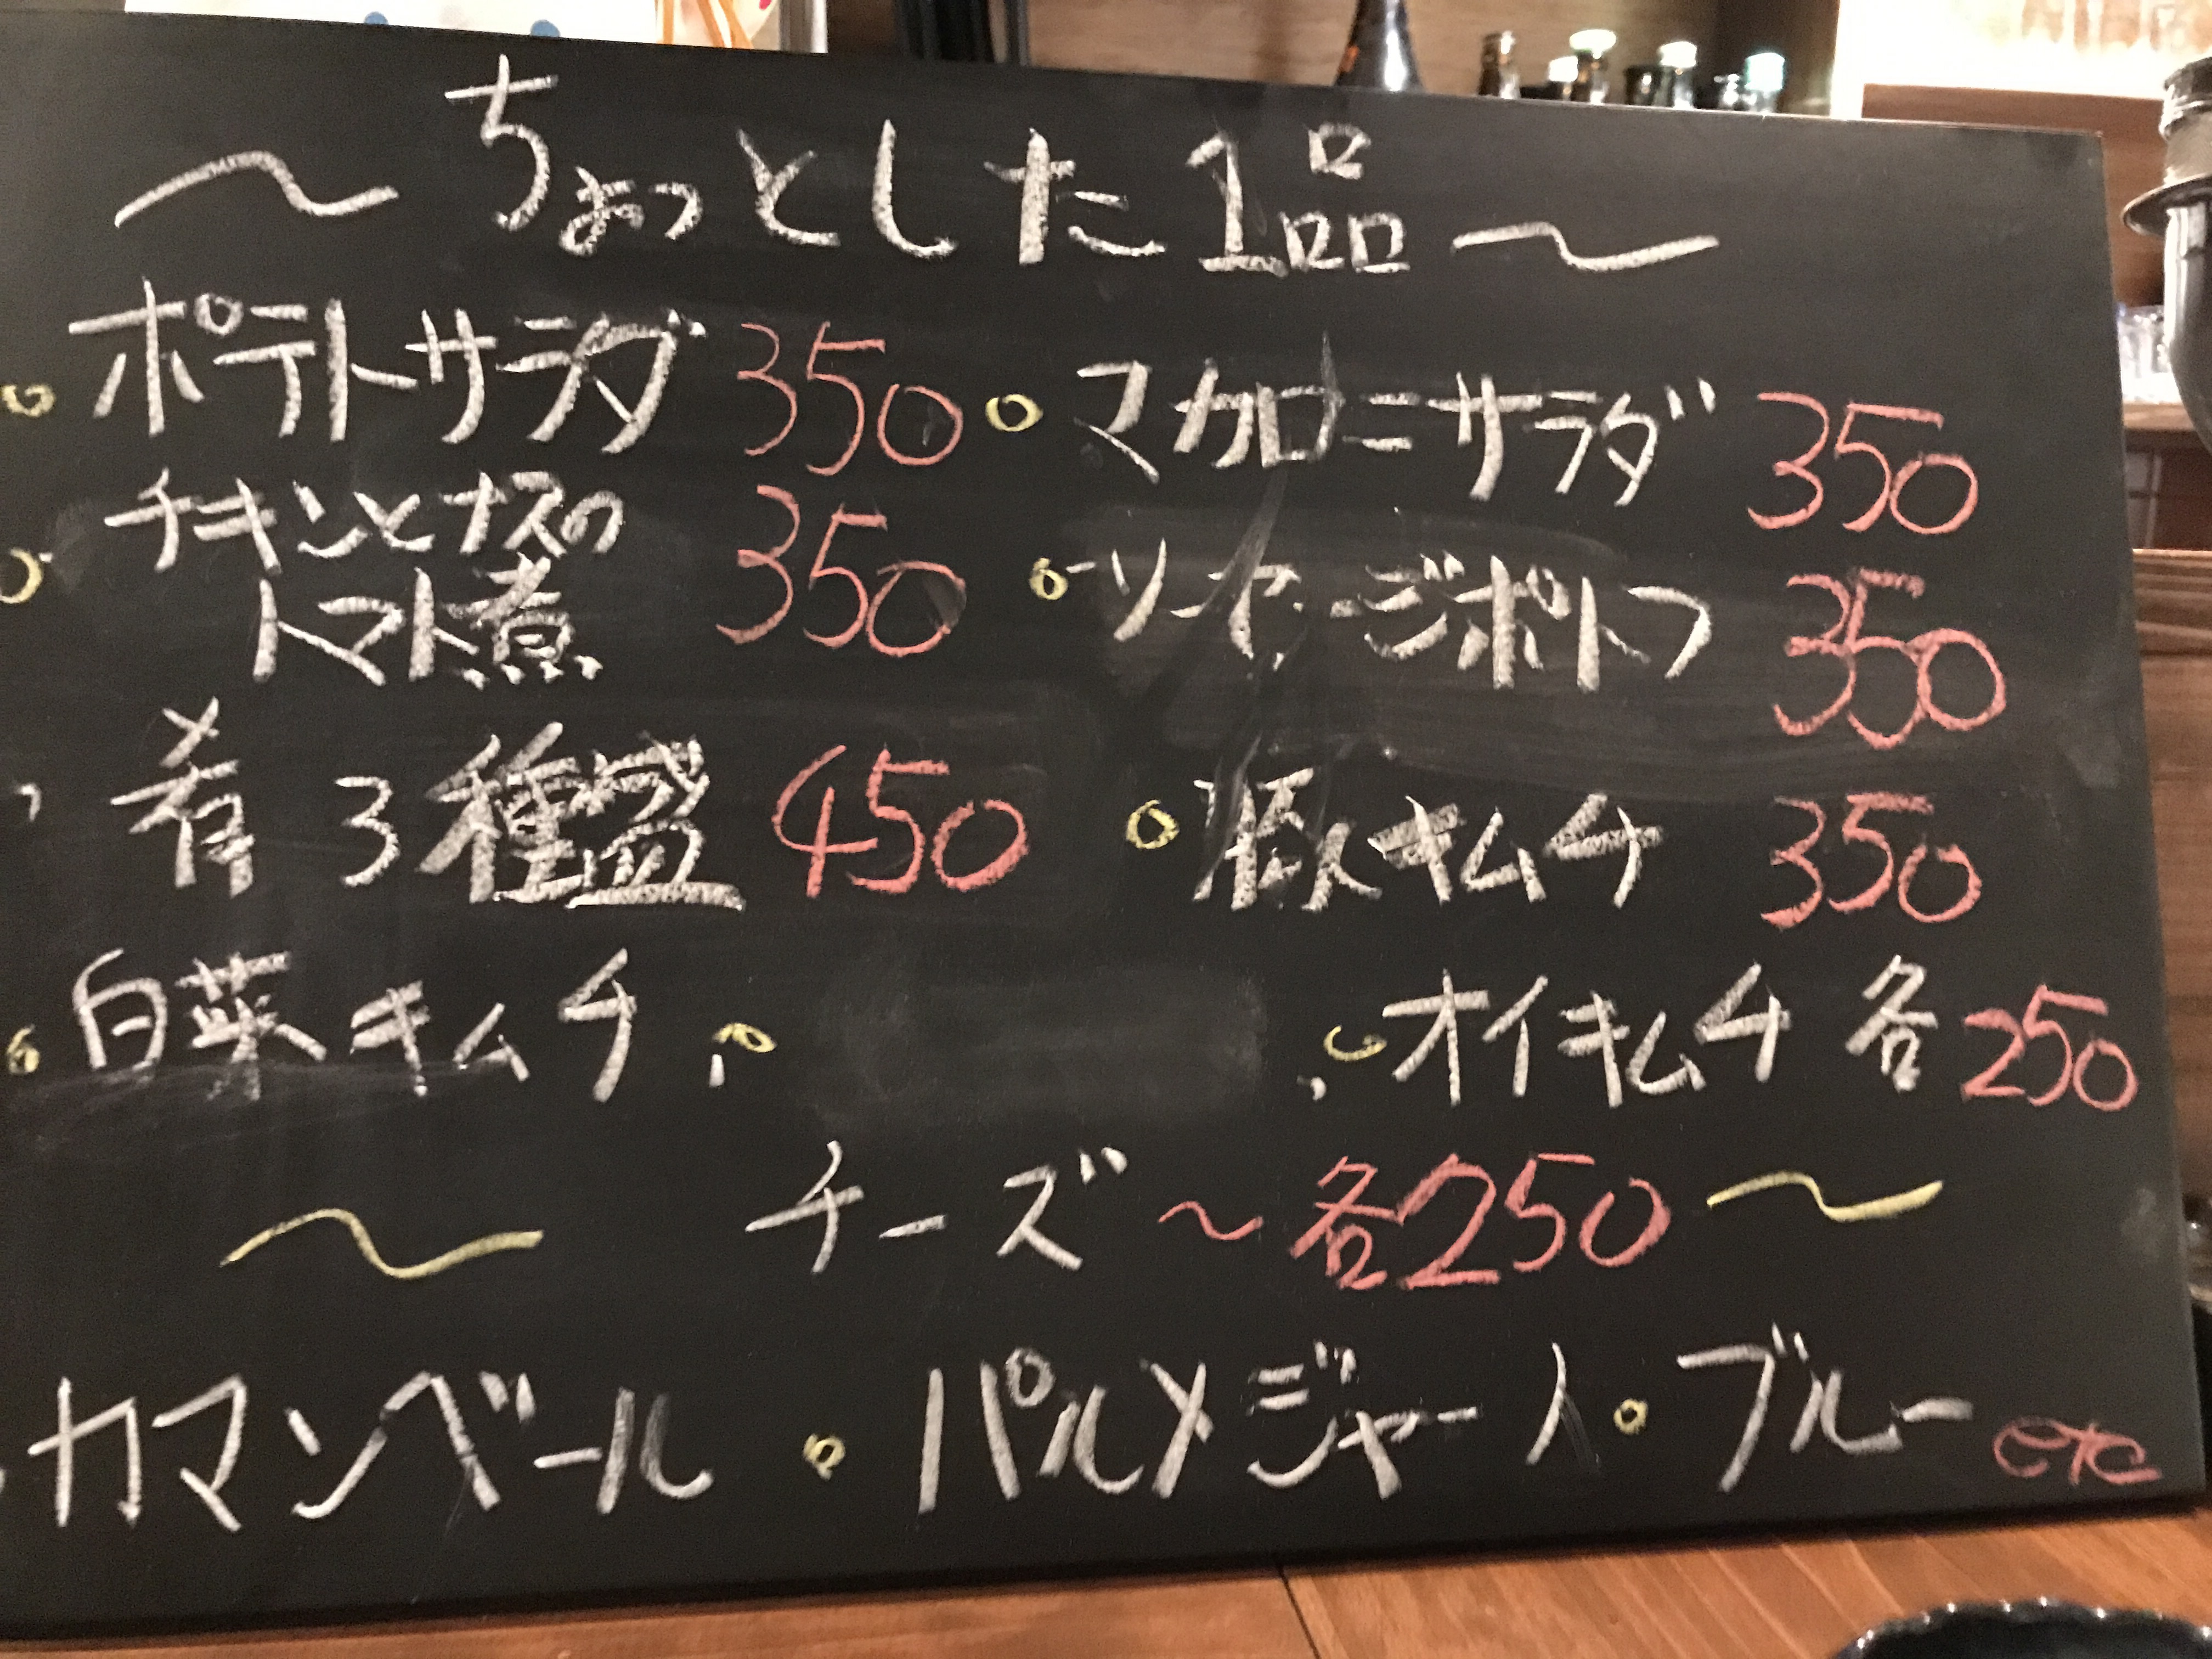 ～ちょっとした1品～
ポテトサラダ 350 マカロニサラダ 350
チキンとナスの
トマト煮 350 ソーセージポトフ 350
肴3種盛 450 豚キムチ 350
白菜キムチ、 、オイキムチ 各250
～ チーズ～各250～
カマンベール パルメジャーノ ブルー etc